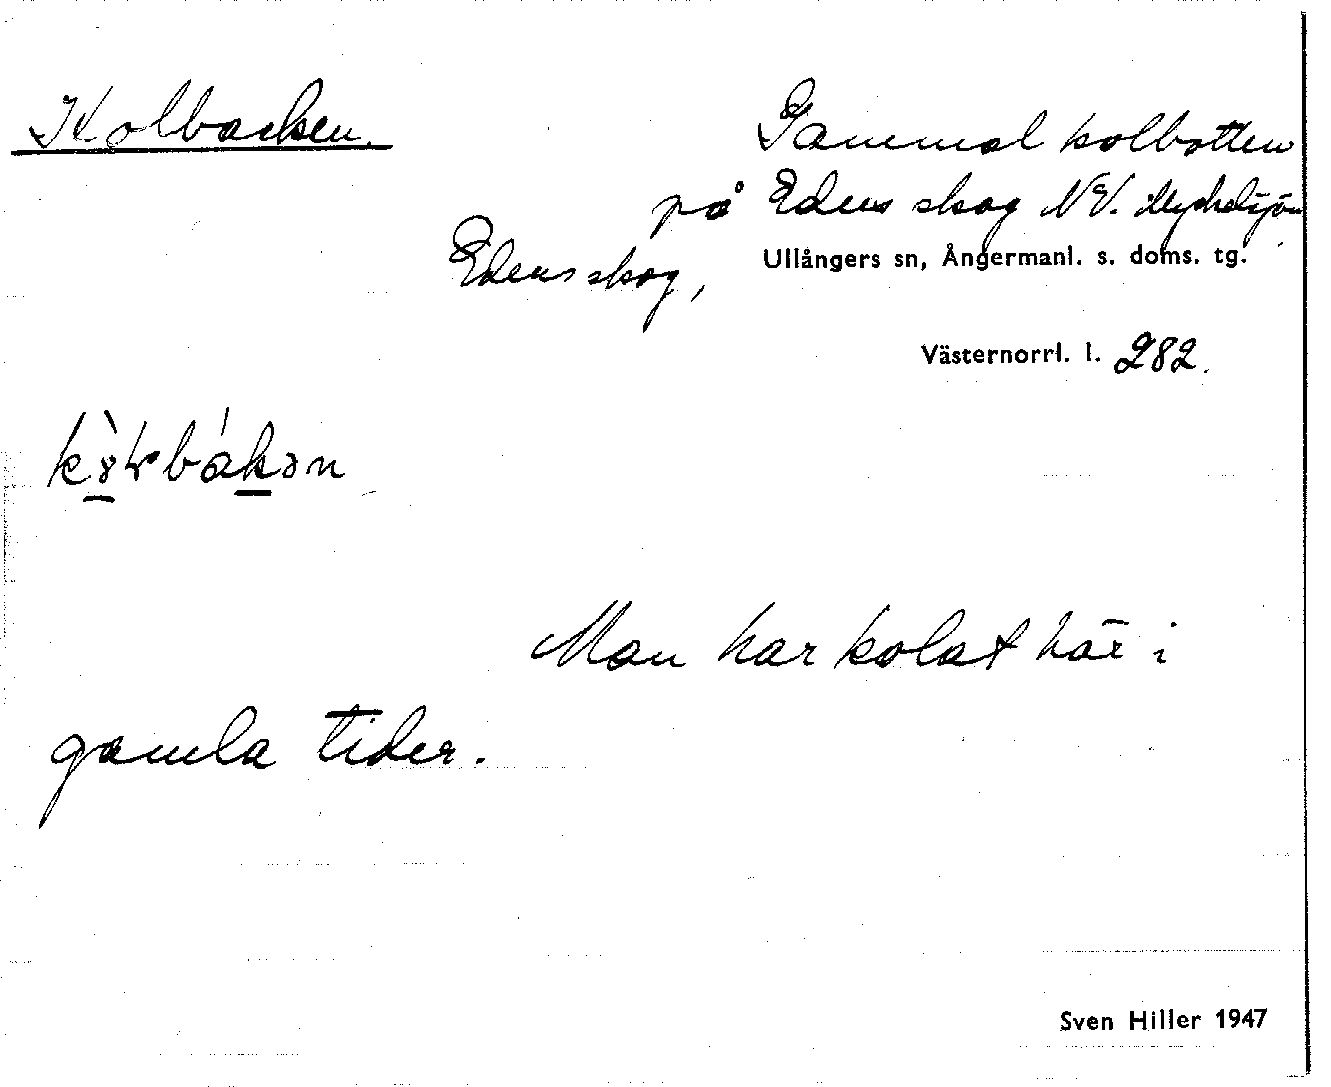 Kolbacken.
Gammal kolbotten
på Edens skog NV. Myckelsjön
Edens skog,
Ullångers sn, Ångermanl. s. doms. tg.
Västernorrl. l. 282.
Man har kolat här i
gamla tider.
Sven Hiller 1947